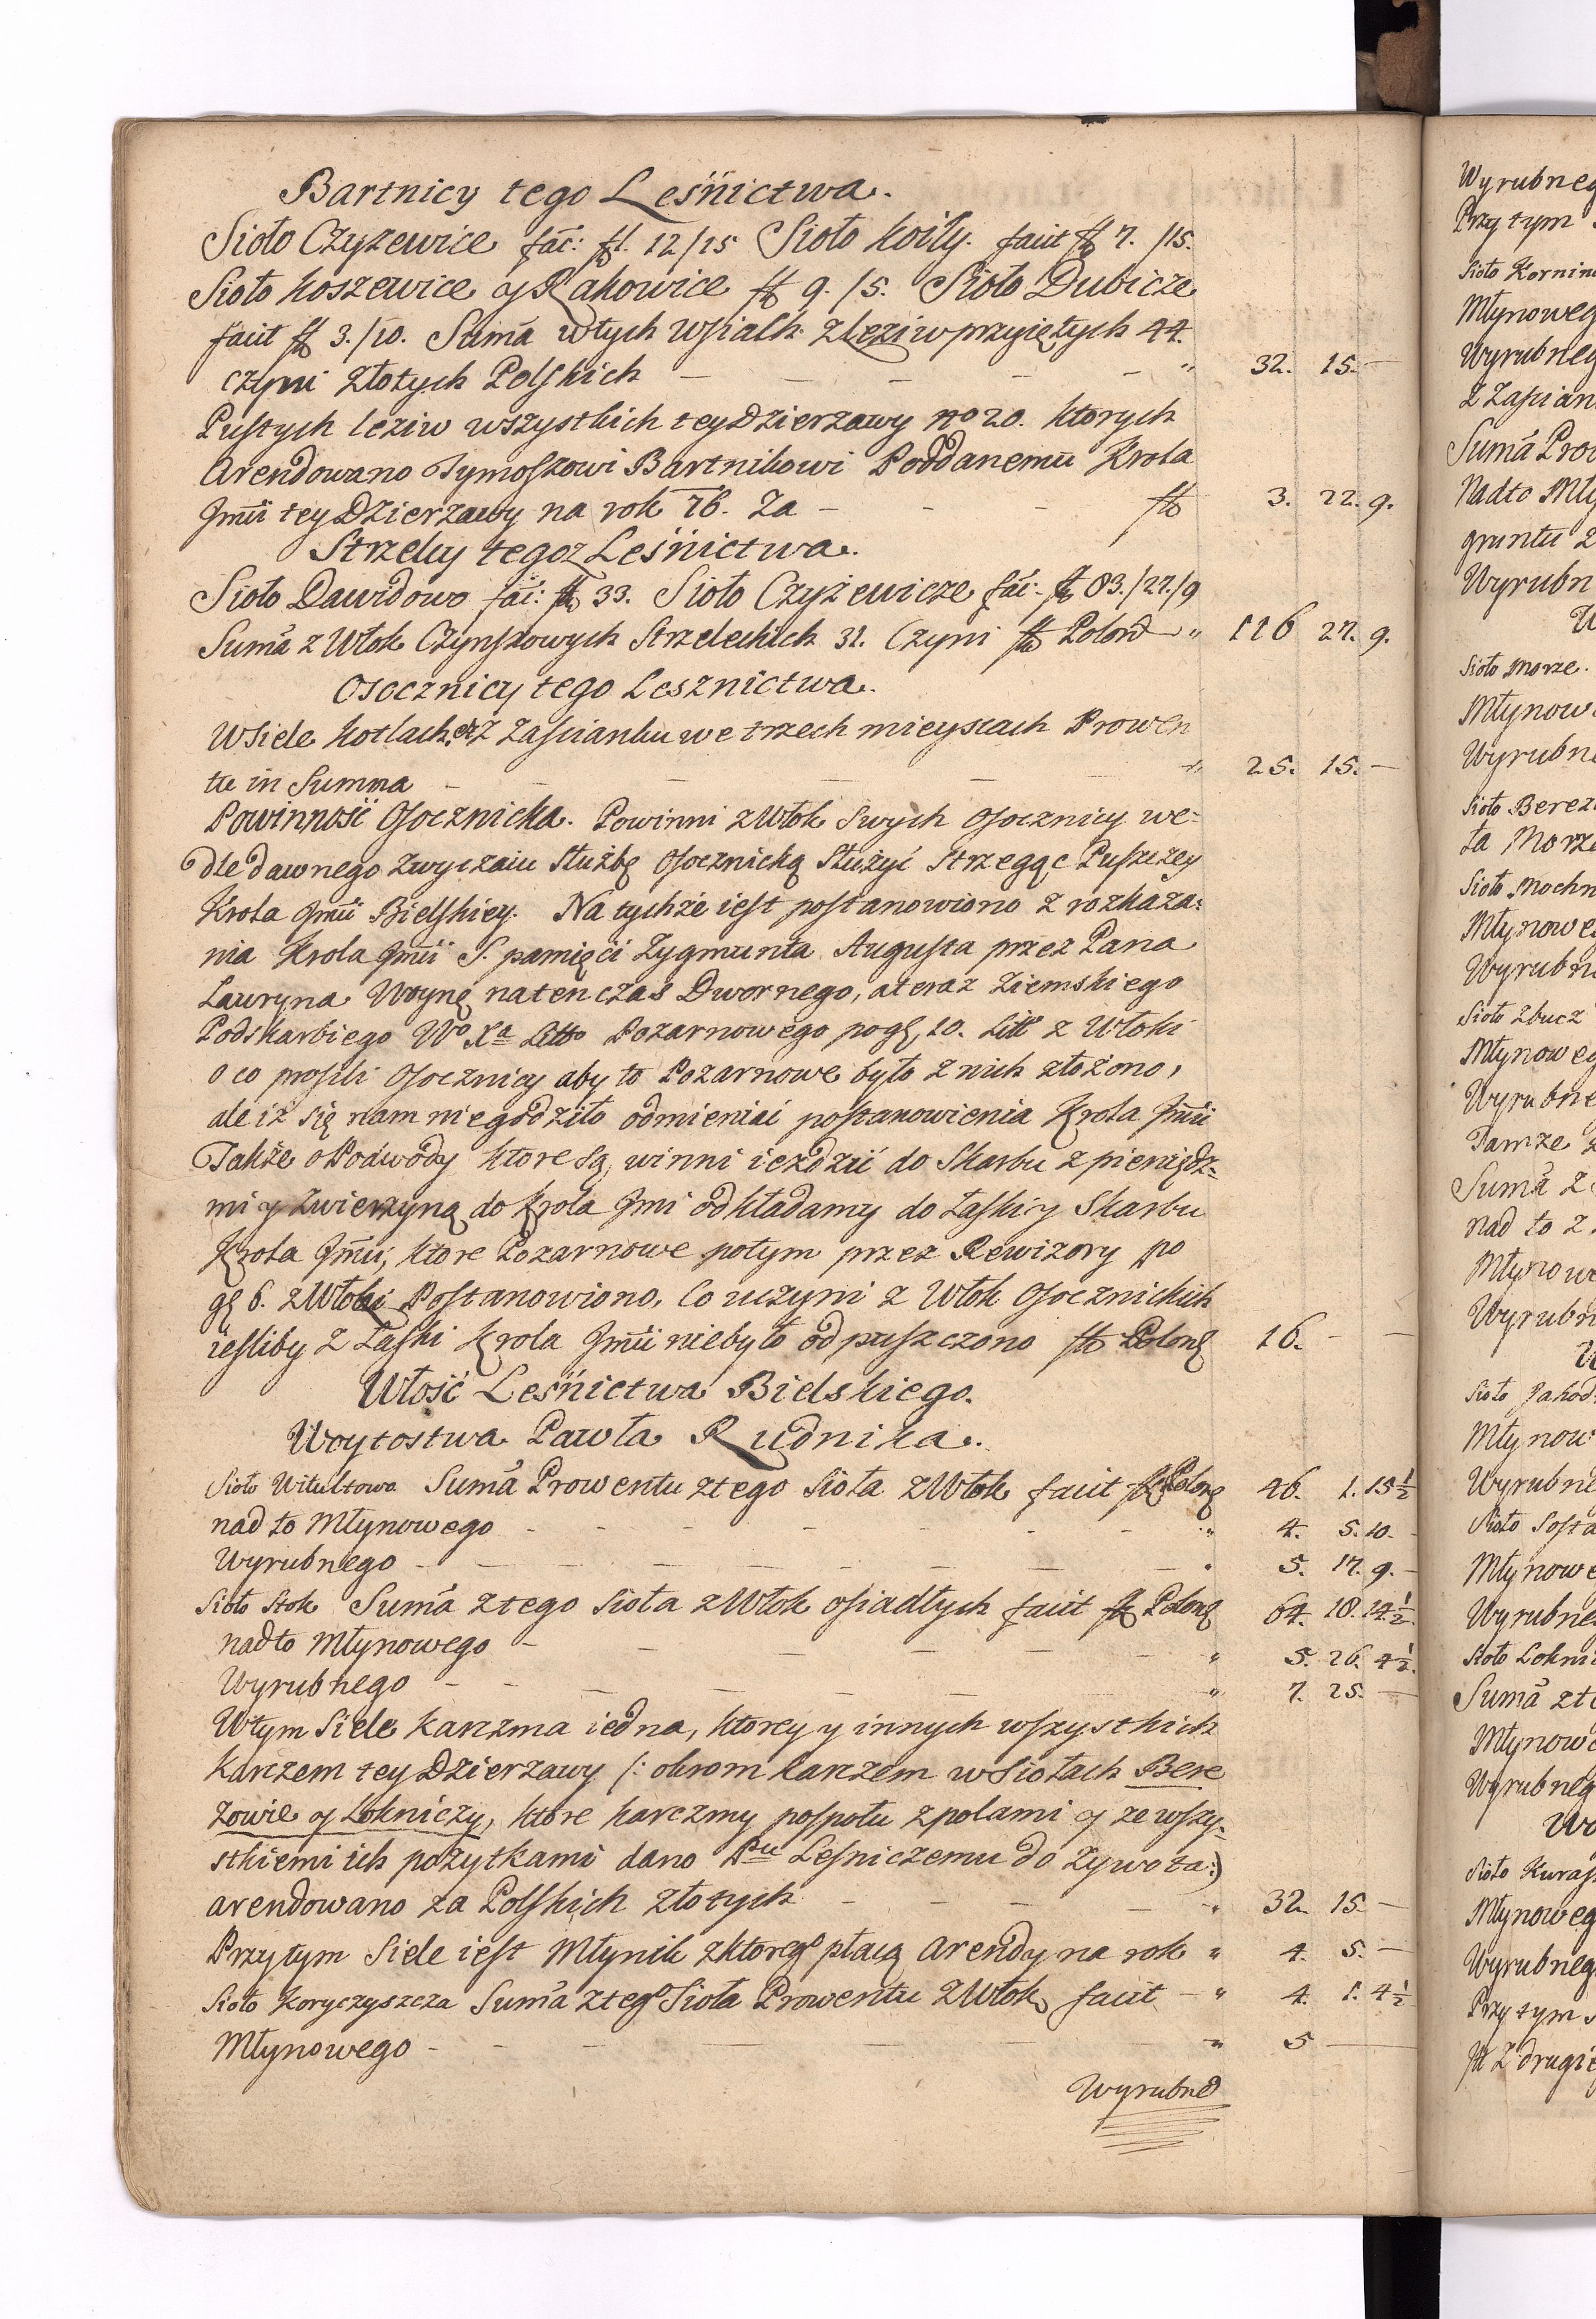 Bartnicy tego Leśnictwa.
Sioło Czyzewice fać: fl. 12/15 Sioło Koiły. faut fl 7. /15.
Sioło Koszewice y Rakowice fl 9. /5. Sioło Dubicze
faut fl 3./10. Suma wtych wsiach zleziw przyiętych 44.
czyni złotych Polskich — — — — — " 32. 15. —
Pustych leziw wszystkich tey Dzierzawy no 20. ktorych
Arendowano Tymoszowi Bartnikowi Poddanemu Krola
Jmći tey Dzierzawy na rok 76. Za - - - fl 3. 22. 9.
Strzelcy tegoz Leśnictwa.
Sioło Dawidowo fać: fl 33. Sioło Czyżewicze fać: fl 83./27./9
Suma z Włok Czynszowych Strzeleckich 31. Czyni fl Polond " 116 27. 9.
Osocznicy tego Lesznictwa.
Wsiele Kotlach, et z Zascianku we trzech mieyscach Prowen
tu in Summa — — — — — " 25. 15. —
Powinność Osocznicka. Powinni zWłok Swych Osocznicy we=
dle dawnego zwyczaiu Służbę Osocznicką Służyć Strzegąc Puszczey
Krola Jmći Bielskiey. Na tychże iest postanowiono z rozkaza=
nia Krola Jmći S. pamięci Zygmunta Augusta przez Pana
Lawryna Woynę natenczas Dwornego, a teraz Ziemskiego
Podskarbiego Wo Xa Litto Pozarnowego po gę 10. Litt z Włoki
o co prosili Osocznicy aby to Pozarnowe było z nich złożono,
ale iz się nam niegodziło odmieniać postanowienia Krola Jmći
Także o Podwody ktore są winni ieździć do Skarbu z pieniędz=
mi y zwierzyną do Krola Jmi odkładamy do łaski y Skarbu
Krola Jmći, ktore Pozarnowe potym przez Rewizory po
gę 6. zWłoki Postanowiono. Co uczyni z Włok Osocznickich
iesliby z Łaski Krola Jmći niebyło odpuszczono fl Polong 16. — —
Włość Leśnictwa Bielskiego.
Woytostwa Pawła Rudnika.
Sioło Witultowo Suma Prowentu ztego Sioła zWłok faut fl Polong 46. 1. 15½
nad to Młynowego - - - - - - " 4. 5. 10. -
Wyrubnego - — — — — — " 5. 17. 9. -
Sioło Stok Suma ztego Sioła zWłok osiadłych faut fl Polong 64. 18. 14½
nadto Młynowego - — — — — " 5. 26. 4½.
Wyrubnego - - — — — — " 7. 25. —
Wtym Siele karczma iedna, ktorey y innych wszystkich
karczem tey Dzierzawy /: okrom karczem w Siołach Bere
zowie y Lokniczy, ktore karczmy pospołu z polami y ze wszy=
stkiemi ich pożytkami dano Pnu Lesniczemu do Zywota:)
arendowano za Polskich złotych - — — — " 32. 15. —
Przytym Siele iest Młynik zktorego płacą Arendy na rok " 4. 5. —
Sioło Koryczyszcza Suma ztego Sioła Prowentu zWłok faut — " 4. 1. 4½
Młynowego - - — — — — " 5 —
Wyrubneo
Wyrubneg
Przytym
Sioło Kornin
Młynoweg
Wyrubneg
Z Zascian
Suma Prow
Nadto Mły
gruntu
Wyrubn
W
Sioło Morze.
Młynow
Wyrubn
Sioło Berez
ta Morze
Sioło Mochn
Młynowe
Wyrubn
Sioło Zbucz
Młynoweg
Wyrubne
Tamze
Suma z
nad to z
Młynowe
Wyrubn
W
Sioło Jakod
Młynow
Wyrubne
Sioło Sosta
Młynowe
Wyrubne
Sioło Lokni
Suma zte
Młynowe
Wyrubneg
Wo
Sioło Kuras
Młynoweg
Wyrubneg
Przytym
z drugie